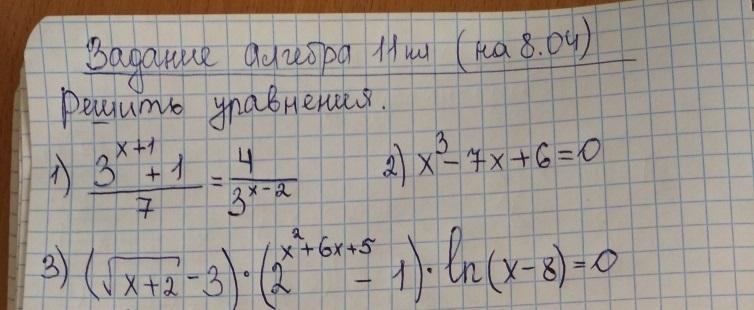 Задание алгебра 11 кл (на 8.04)
Решить уравнения.
1) (3^(x+1) + 1)/7 = 4/3^(x-2) 2) x^3 - 7x + 6 = 0
3) (√(x+2) - 3) · (2^(x^2+6x+5) - 1) · ln(x-8) = 0